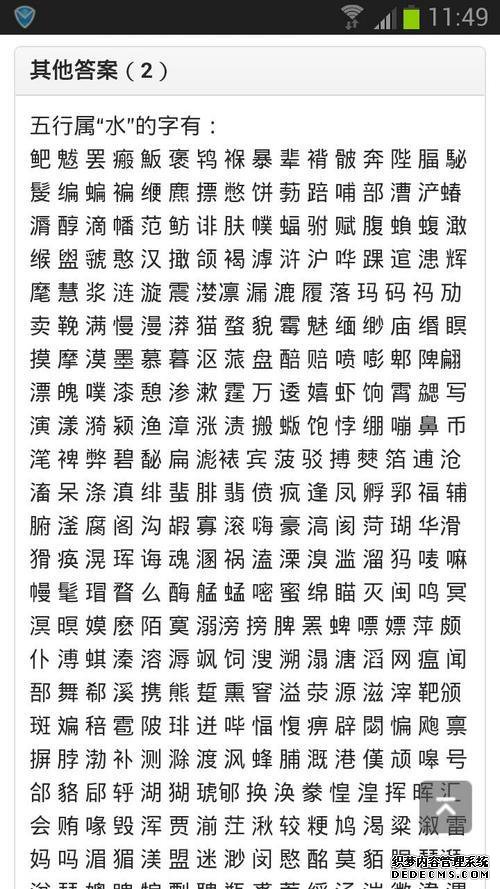 11:49
其他答案（2）
五行属“水”的字有：
鲃 魃 罢 瘢 魬 褒 鸨 褓 暴 辈 褙 骳 奔 陛 腷 駜
髲 编 蝙 褊 缏 麃 摽 憋 饼 葧 踣 哺 部 漕 浐 蝽
漘 醇 滴 幡 范 鲂 诽 肤 幞 蝠 驸 赋 腹 蝜 蝮 澉
缑 盥 虢 憨 汉 撖 颌 褐 滹 浒 沪 哗 踝 逭 漶 辉
麾 慧 浆 涟 漩 震 漤 凛 漏 漉 履 落 玛 码 祃 劢
卖 鞔 满 慢 漫 漭 猫 蝥 貌 霉 魅 缅 缈 庙 缗 瞑
摸 摩 漠 墨 慕 暮 沤 蒎 盘 醅 赔 喷 嘭 郫 陴 翩
漂 魄 噗 漆 憩 渗 漱 霆 万 逶 嬉 虾 饷 霄 勰 写
演 漾 漪 颍 渔 漳 涨 渍 搬 蝂 饱 悖 绷 嘣 鼻 币
滗 裨 弊 碧 馝 扁 滮 裱 宾 菠 驳 搏 僰 箔 逋 沧
滀 呆 涤 滇 绯 蜚 腓 翡 偾 疯 逢 凤 孵 郭 福 辅
腑 滏 腐 阁 沟 嘏 寡 滚 嗨 豪 滈 阂 菏 瑚 华 滑
猾 痪 滉 珲 诲 魂 溷 祸 溘 溧 溴 滥 溜 犸 唛 嘛
幔 髦 瑁 瞀 么 酶 艋 蜢 嘧 蜜 绵 瞄 灭 闽 鸣 冥
溟 暝 嫫 麽 陌 寞 溺 滂 搒 脾 罴 蜱 嘌 嫖 萍 颇
仆 溥 蜞 溱 溶 溽 飒 饲 溲 溯 溻 溏 滔 网 瘟 闻
郚 舞 郗 溪 携 熊 踅 熏 窨 溢 荥 源 滋 滓 靶 颁
斑 斒 稖 雹 陂 琲 迸 哔 愊 愎 痹 辟 閟 惼 飑 禀
摒 脖 渤 补 测 滁 渡 沨 蜂 脯 溉 港 僙 颃 嗥 号
郃 貉 郈 轷 湖 猢 琥 郇 换 涣 豢 惶 湟 挥 晖 汇
会 贿 喙 毁 浑 贾 湔 茳 湫 较 粳 鸠 渴 粱 溆 雷
妈 吗 湄 猸 渼 盟 迷 渺 闵 愍 酩 莫 貊